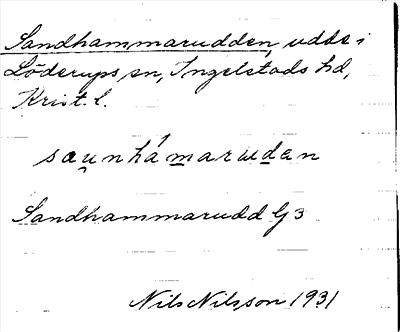 Sandhammarudden, udde i
Löderups sn, Ingelstads hd,
Krist. l.
saunhámarudan
Sandhammarudd G3
Nils Nilsson 1931